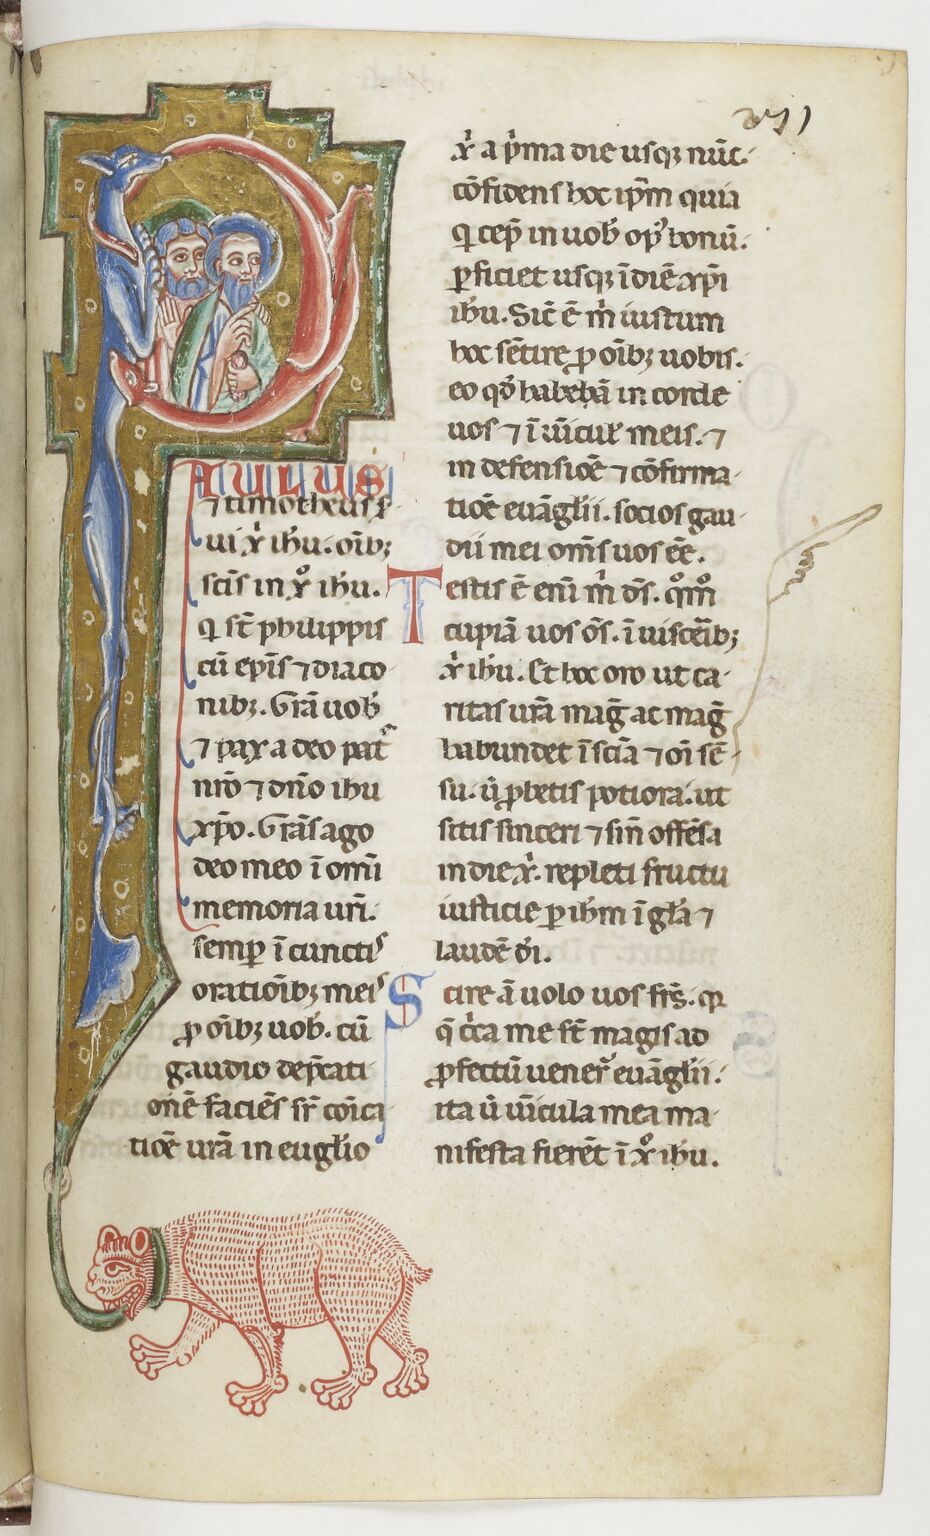 PAULUS
⁊ timotheus ẜ-
ui xp̄i ihu. oīb;
scīs in xp̄o ihu.
q̄ st̄ philippis
cū ep̄is ⁊ diaco-
nib;. Grā̄ uob̄
⁊ pax a deo pat̄
nr̄o ⁊ dn̄o ihu
xp̄o. Grās̄ ago
deo meo ī om̄i
memoria ur̄i.
semp̄ ī cunctis
oratiōib; meis
ꝓ oīb; uob̄. cū
gaudio dep̄cati
onē faciēs sr̄ cōica
tiōē ur̄ā in euglio
xp̄i a p̄ma die usq; nūc.
cōfidens hoc ip̄m quia
q̄ cep̄ in uob̄ op̄ bonū.
ꝑficiet usq; ī diē xp̄i
ihu. Sic̄ ē m̄ iustum
hoc sētire ꝓ oīb; uobis.
eo qđ habeā in corde
uos ⁊ ī uīcul̄ meis. ⁊
in defensiōē ⁊ cōfirma-
tiōē euāglii. socios gau-
dii mei om̄s uos eē.
Testis ē eni m̄ d̄s. qm̄o
cupiā uos o̅s. ī uiscēib;
xp̄i ihu. Et hoc oro ut ca-
ritas ur̄ā mag̅ ac mag̅
habundet ī sciā ⁊ oī sē-
su. ū̄ ꝓbetis potiora. ut
sitis sinceri ⁊ sin̄ offēsa
in die xp̄i. repleti fructu
iusticie ꝑ ihm̄ ī gl̄a ⁊
laudē d̄i.
Scire ā uolo uos frs̄. q̄
q̄ cc̄a me st̄ magis ad
ꝓfectū uener̄ euāglii.
ita ū̄ uīcula mea ma-
nifesta fierēt ī xp̄o ihu.